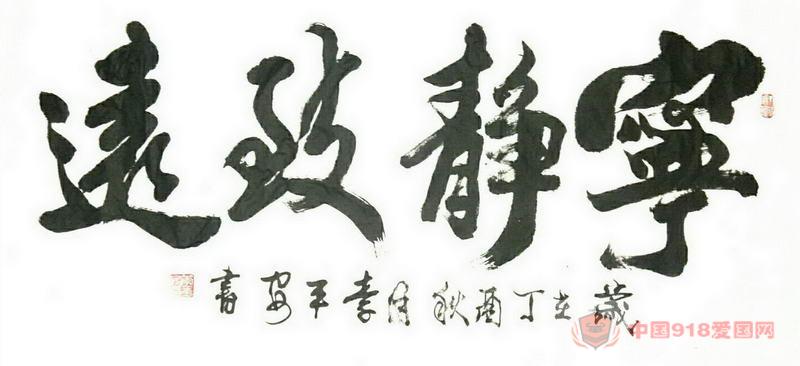 寧靜致遠
歲在丁酉秋月李平安書
中国918爱国网